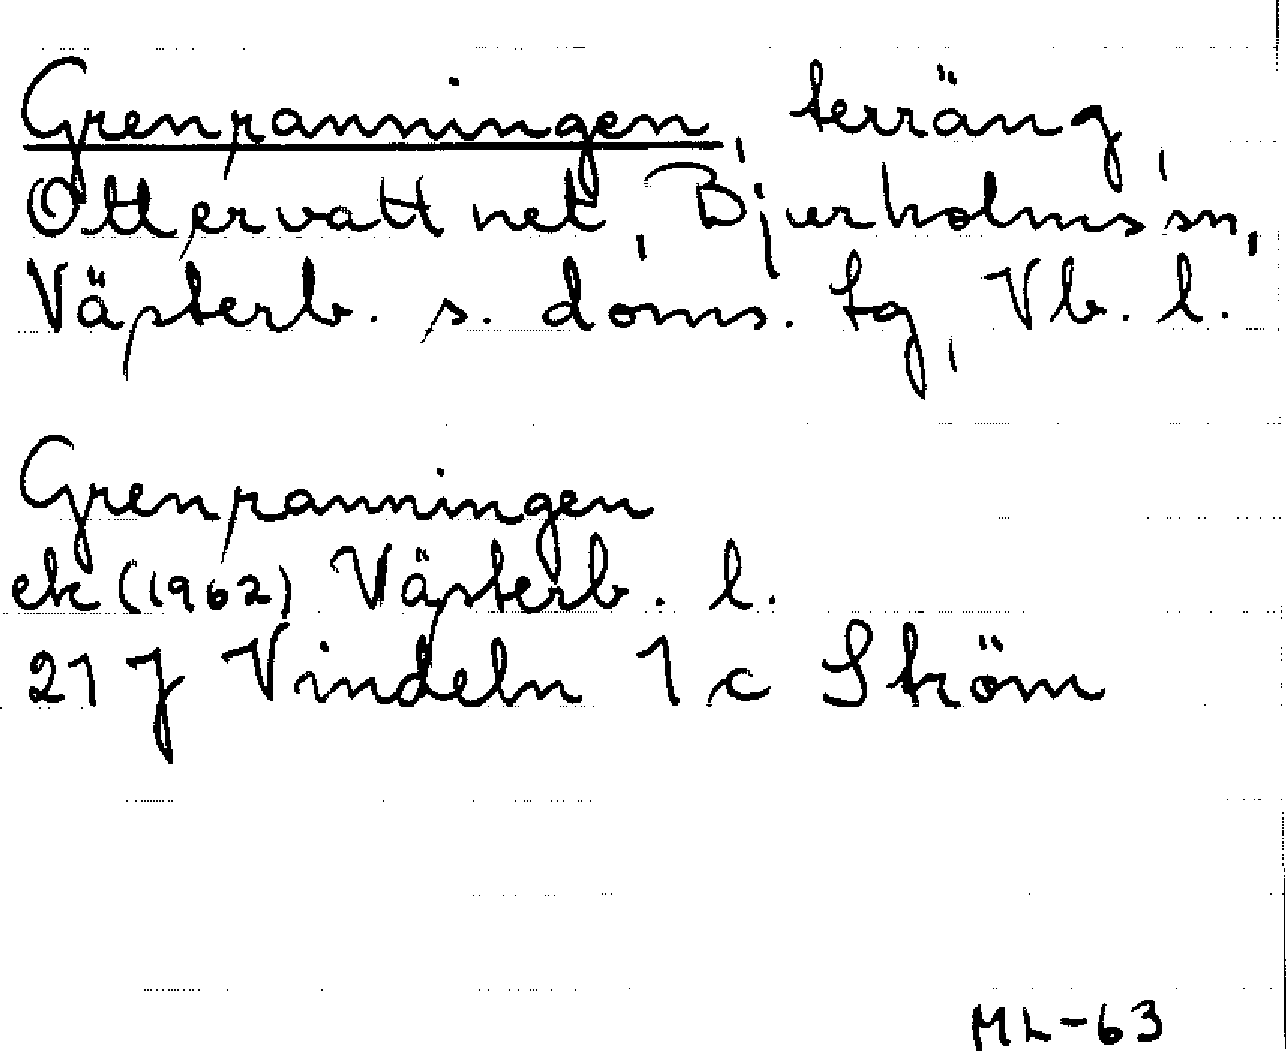 Grenranningen, terräng,
Ottervattnet, Bjurholms sn,
Västerb. s. doms. tg, Vb. l.
Grenranningen
ek (1962) Västerb. l.
21 J Vindeln 1 c Ström
ML-63